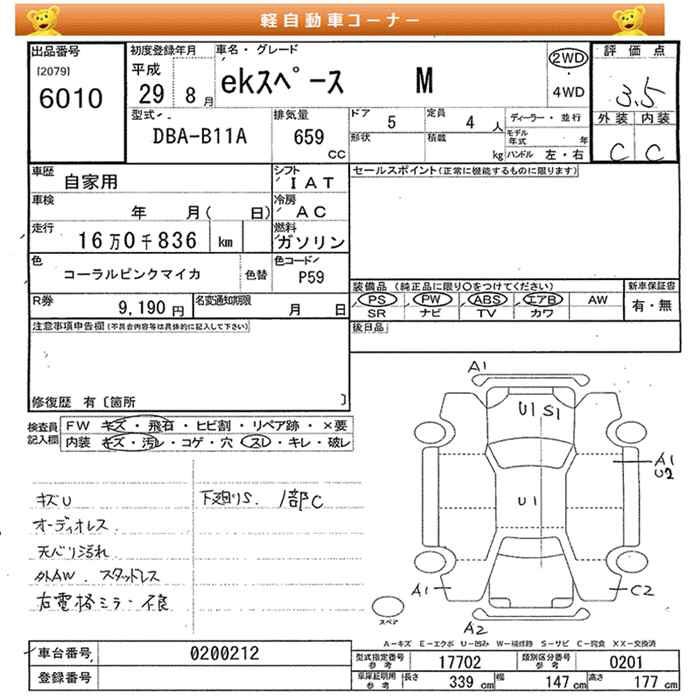 軽自動車コーナー
出品番号 初度登録年月 車名・グレード 評価点
[2079] 平成 ekスペース M 2WD
6010 29 8月 4WD 3.5
型式 排気量 ドア 5 定員 4人 ディーラー・並行 外装 内装
DBA-B11A 659 CC 形状 積載 kg モデル年式 年 C C
ハンドル 左・右
車歴 自家用 シフト IAT セールスポイント(正常に機能するものに限ります)
車検 年 月( 日) 冷房 AC
走行 16万0千836 km 燃料 ガソリン
色 コーラルピンクマイカ 色替 色コード P59
装備品(純正品に限り〇をつけてください) 新車保証書
R券 9,190円 名変通知期限 月 日 PS PW ABS エアB AW 有・無
SR ナビ TV カワ
注意事項申告欄(不具合内容等は具体的に記入して下さい) 後日品
修復歴 有〔箇所 〕
検査員記入欄 FW キズ・飛石・ヒビ割・リペア跡・×要
内装 キズ・汚レ・コゲ・穴 スレ・キレ・破レ
A1
U1 S1
A1
U2
U1
A1 C2
A2
スペア
キズU 下廻りS. 1部C
オーディオレス.
天ベリ汚れ
外AW. スタッドレス
右電格ミラー不良
A-キズ E-エクボ U-凹み W-補修跡 S-サビ C-腐食 XX-交換済
車台番号 0200212 型式指定番号 参考 17702 類別区分番号 参考 0201
登録番号 車庫証明用 参考 長さ 339cm 幅 147cm 高さ 177cm